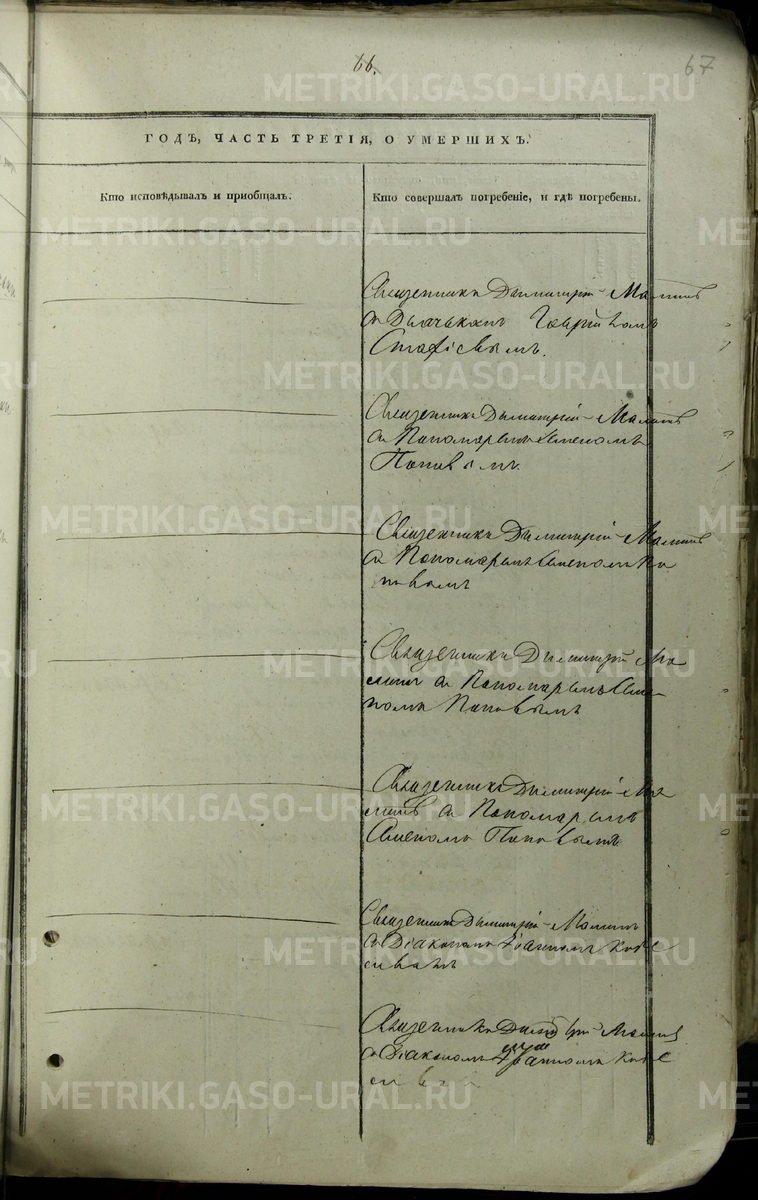 66.
67
ГОДЪ, ЧАСТЬ ТРЕТІЯ, О УМЕРШИХЪ.
Кто исповѣдывалъ и приобщалъ.
Кто совершалъ погребеніе, и гдѣ погребены.
Священникъ Димитрій Маминъ
съ Дьячькомъ
Священникъ Димитрій Маминъ
съ Пономаремъ Симеономъ
Поповымъ
Священникъ Димитрій Маминъ
съ Пономаремъ Симеономъ По
повымъ
Священникъ Димитрій Ма
минъ съ Пономаремъ Симе
ономъ Поповымъ
Священникъ Димитрій Ма
минъ съ Пономаремъ
Симеономъ Поповымъ
Священникъ Димитрій Маминъ
съ Діакономъ Іоанномъ
Священникъ Димитрій Маминъ
съ Діакономъ Іоанномъ
METRIKI.GASO-URAL.RU